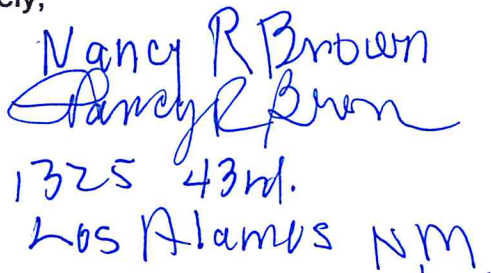 Nancy R Brown
Nancy R Brown
1325 43rd.
Los Alamos NM